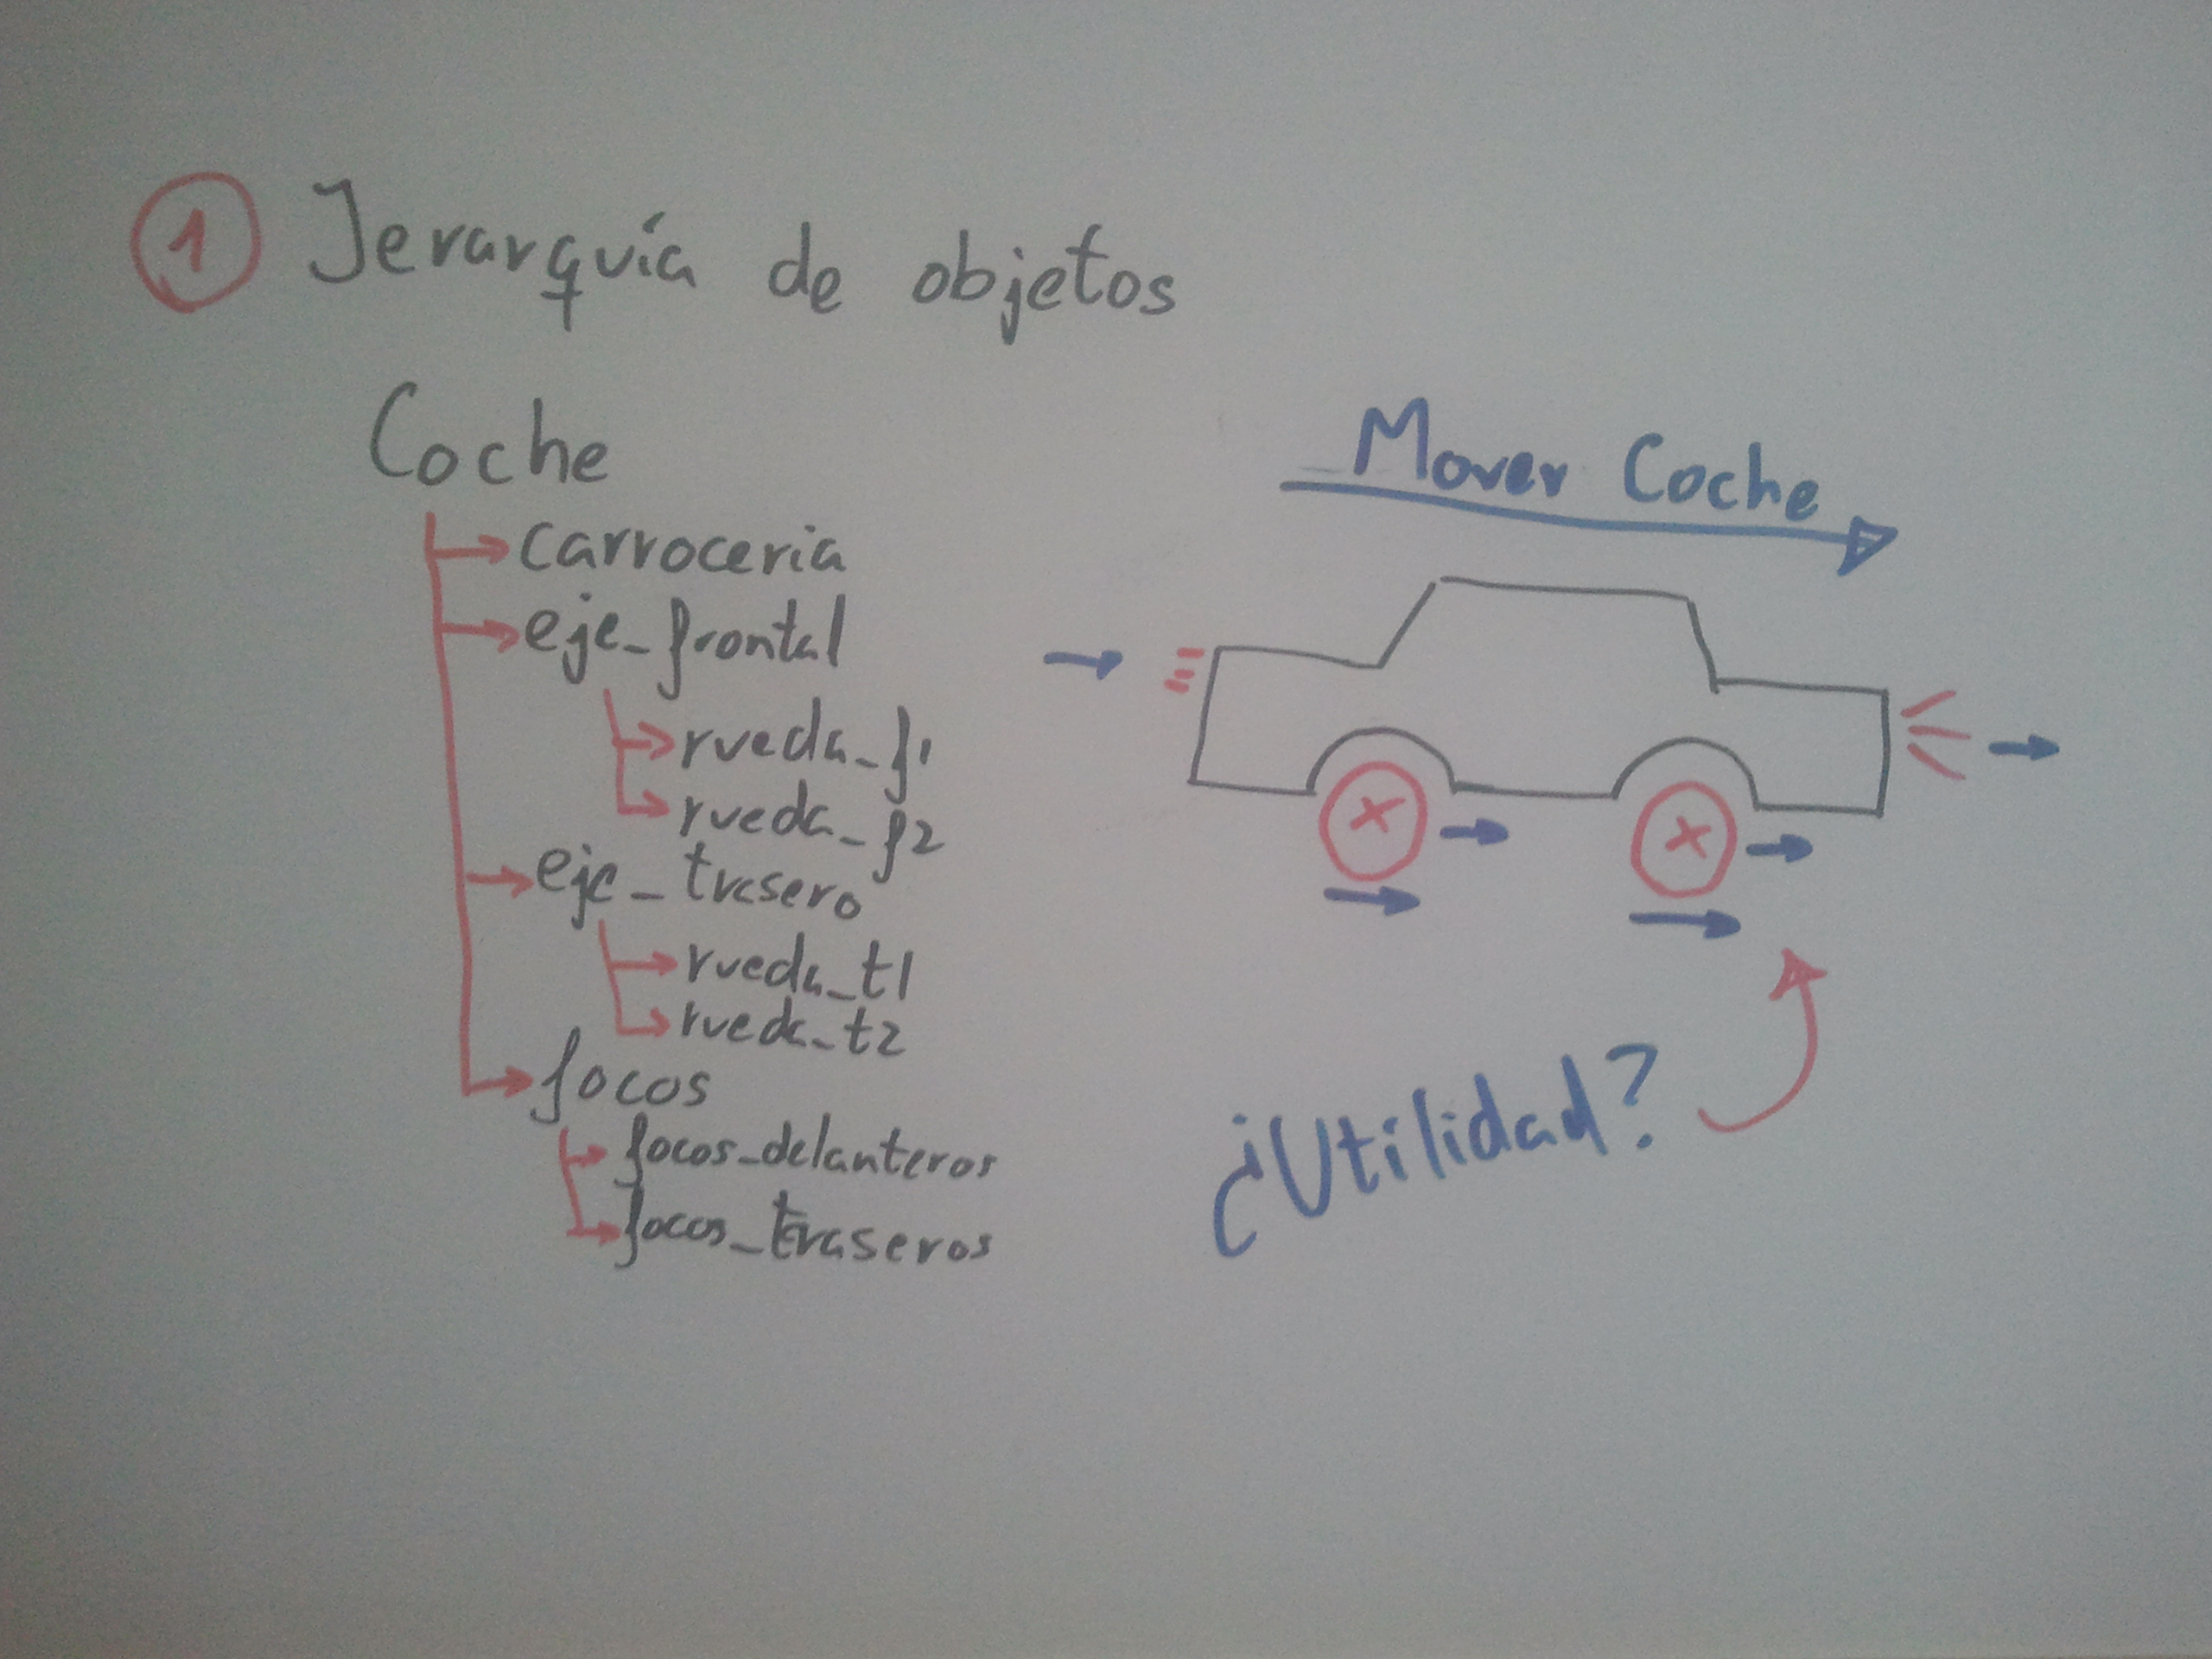 1 Jerarquía de objetos
Coche
carroceria
eje_frontal
rueda_f1
rueda_f2
eje_trasero
rueda_t1
rueda_t2
focos
focos_delanteros
focos_traseros
Mover Coche
¿Utilidad?